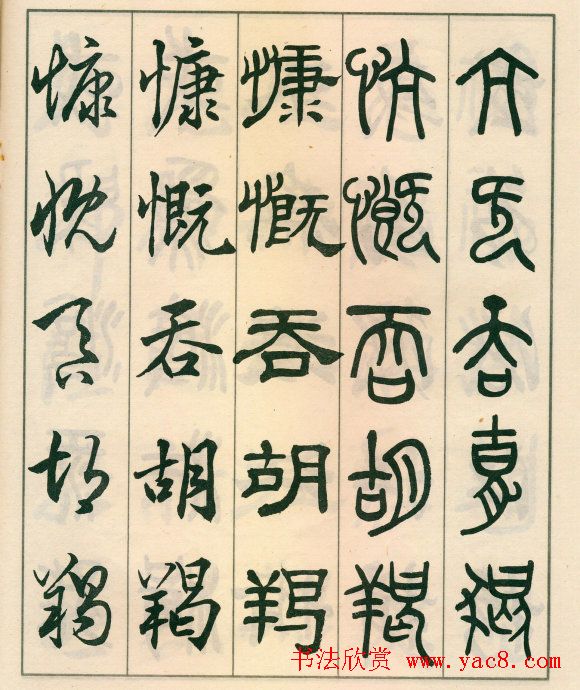 亢吞
忼慨吞胡羯
慷慨吞胡羯
慷慨吞胡羯
慷慨吞胡羯
书法欣赏 www.yac8.com